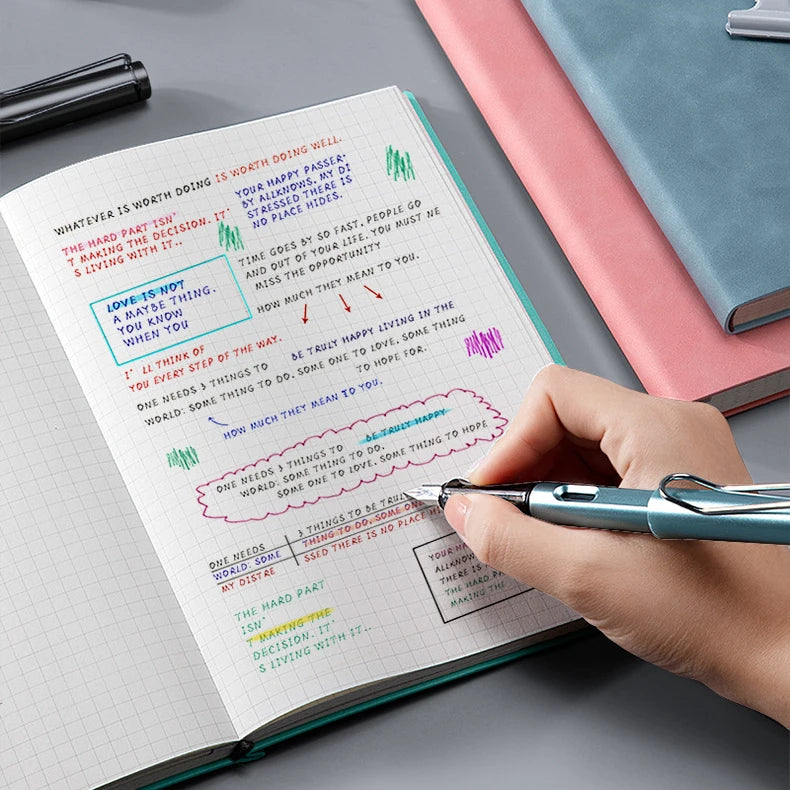 WHATEVER IS WORTH DOING IS WORTH DOING WELL.
THE HARD PART ISN'
T MAKING THE DECISION. IT'
S LIVING WITH IT..
YOUR HAPPY PASSER-
BY ALLKNOWS, MY DI
STRESSED THERE IS
NO PLACE HIDES.
TIME GOES BY SO FAST, PEOPLE GO
AND OUT OF YOUR LIFE. YOU MUST NE
MISS THE OPPORTUNITY
HOW MUCH THEY MEAN TO YOU.
LOVE IS NOT
A MAYBE THING.
YOU KNOW
WHEN YOU
I' LL THINK OF
YOU EVERY STEP OF THE WAY.
BE TRULY HAPPY LIVING IN THE
ONE NEEDS 3 THINGS TO
WORLD: SOME THING TO DO. SOME ONE TO LOVE, SOME THING
TO HOPE FOR.
HOW MUCH THEY MEAN TO YOU.
ONE NEEDS 3 THINGS TO BE TRULY HAPPY
WORLD: SOME THING TO DO.
SOME ONE TO LOVE. SOME THING TO HOPE
ONE NEEDS 3 THINGS TO BE TRULY
WORLD: SOME THING TO DO. SOME ONE
MY DISTRE SSED THERE IS NO PLACE HI
YOUR HA
ALLKNOW
THERE IS
THE HARD PAR
MAKING THE
THE HARD PART
ISN'
T MAKING THE
DECISION. IT'
S LIVING WITH IT..